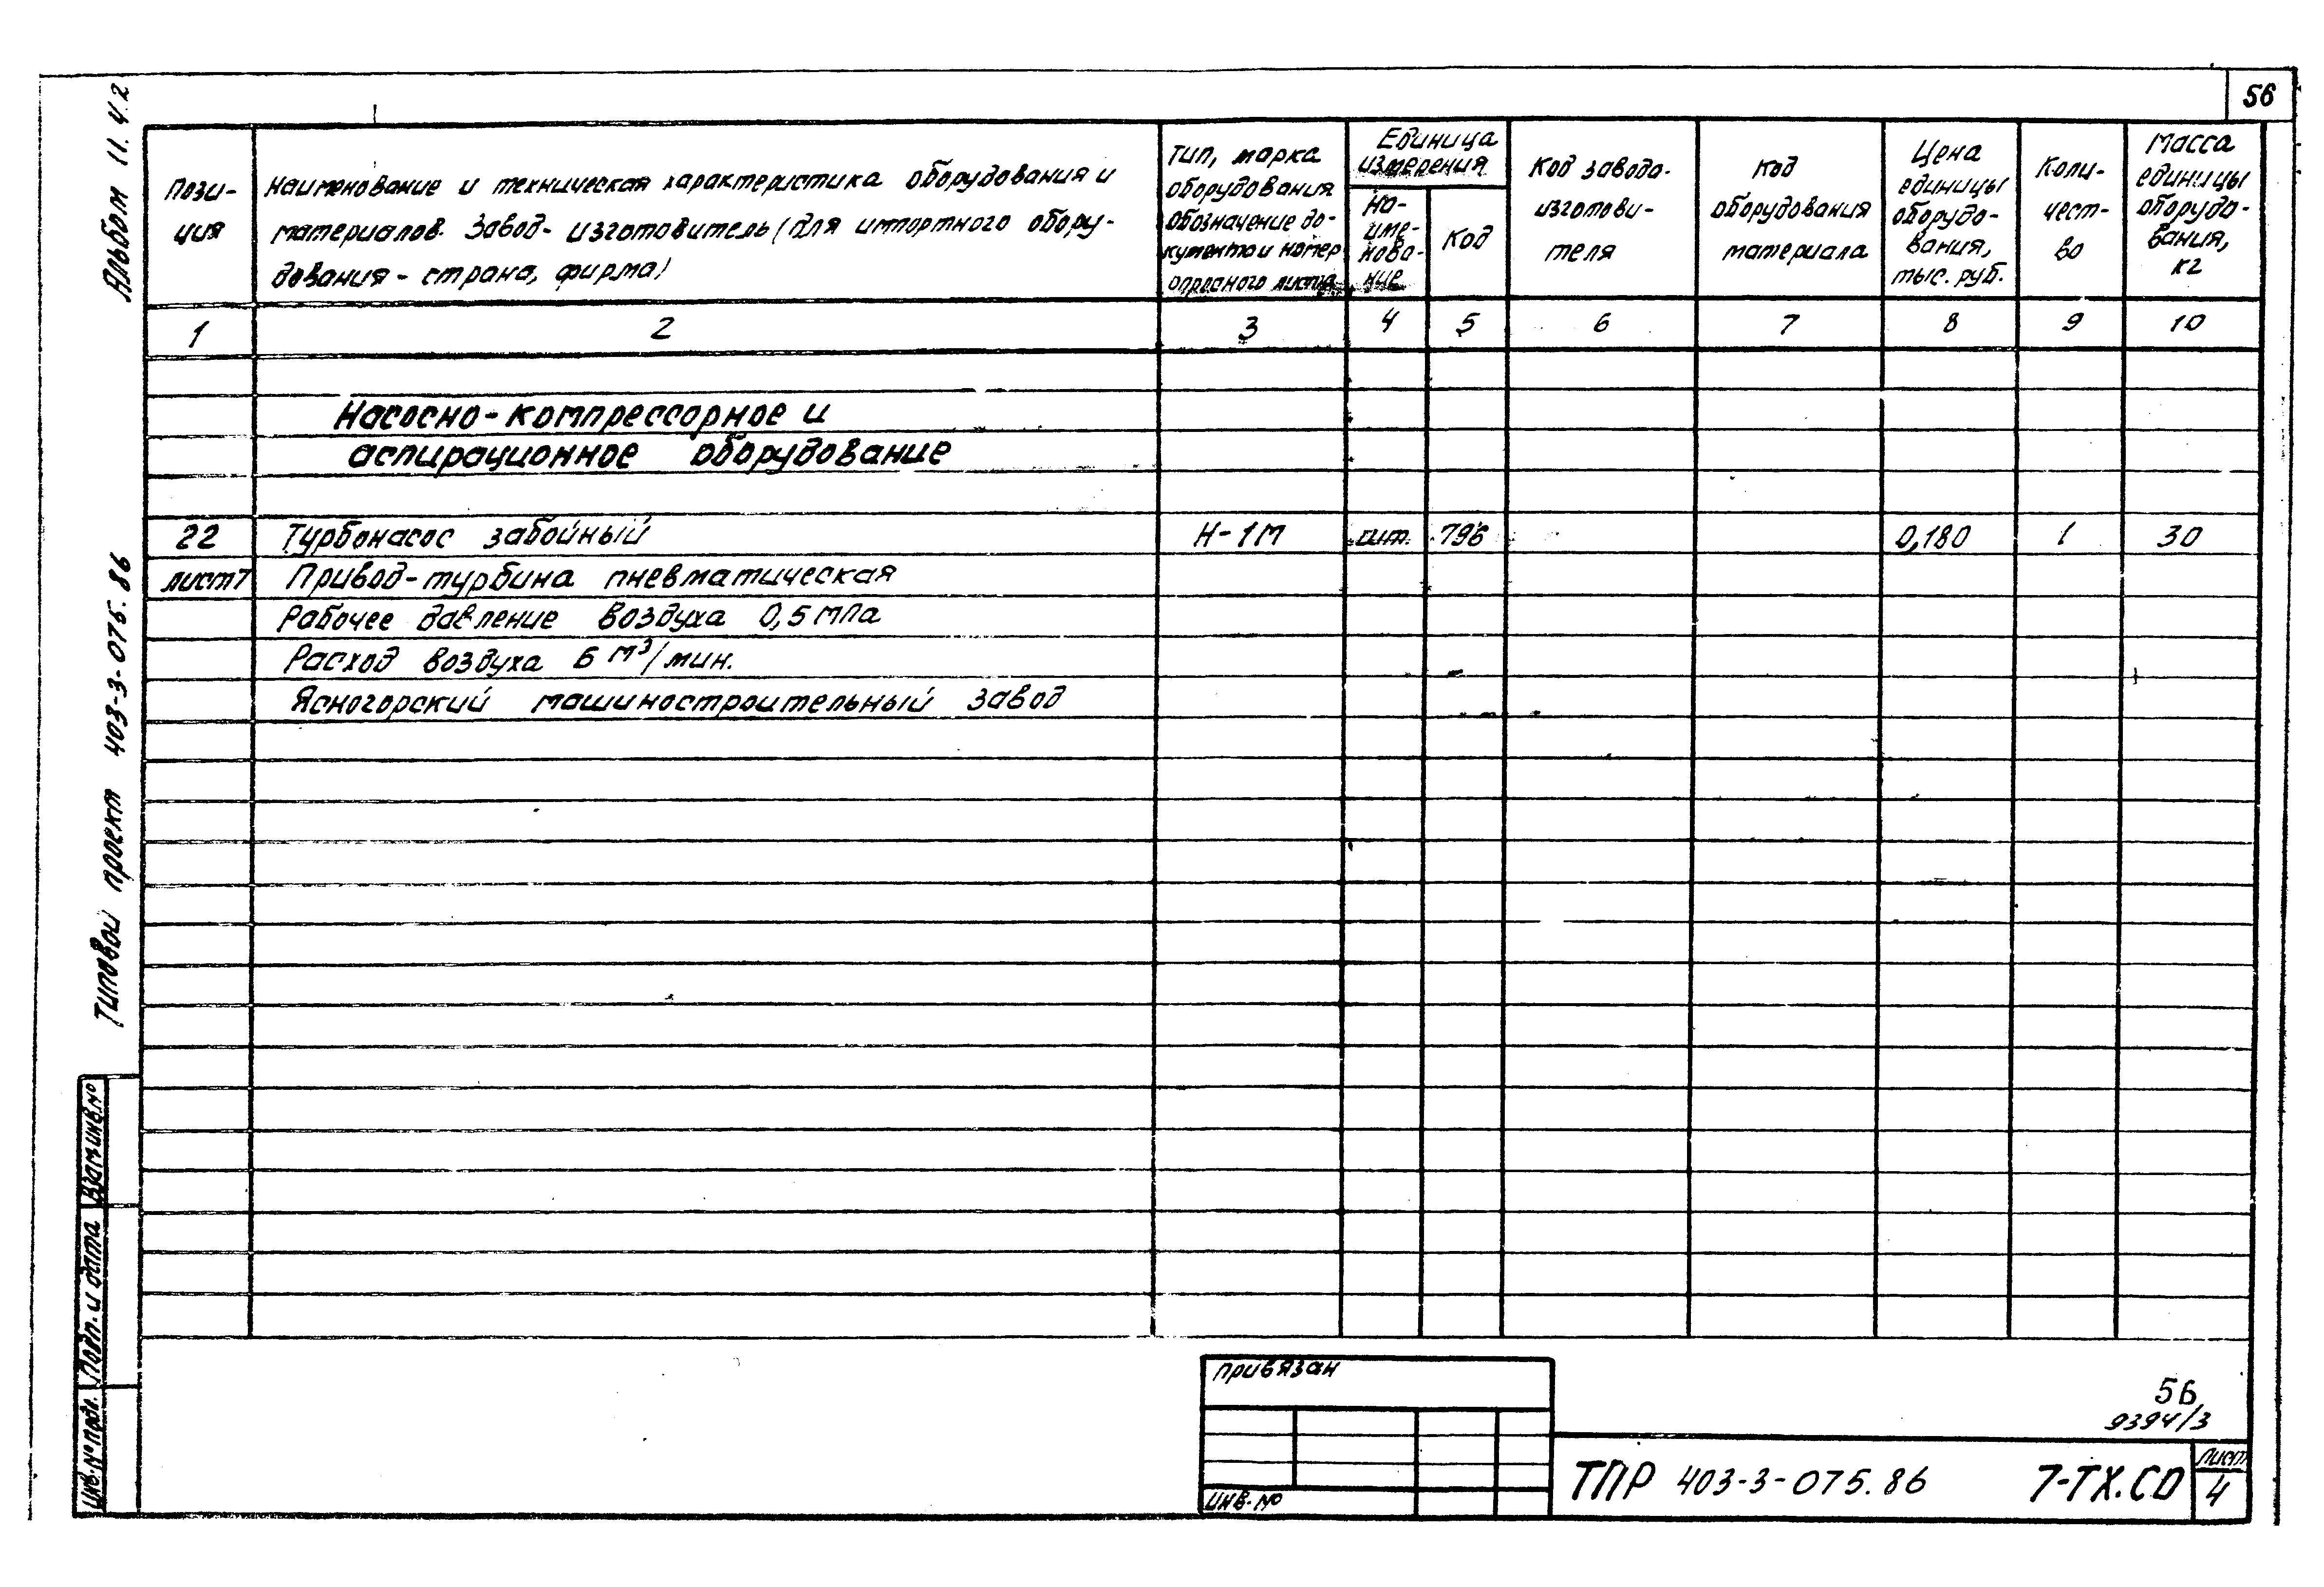 56
Альбом 11.4.2
Типовой проект 403-3-075.86
Пози-
ция
Наименование и техническая характеристика оборудования и
материалов. Завод-изготовитель (для импортного обору-
дования - страна, фирма)
Тип, марка
оборудования
обозначение до-
кумента и номер
опросного листа
Единица
измерения
На-
име-
нова-
ние
Код
Код завода-
изготови-
теля
Код
оборудования
материала
Цена
единицы
оборудо-
вания,
тыс. руб.
Коли-
чест-
во
Масса
единицы
оборудо-
вания,
кг
1 2 3 4 5 6 7 8 9 10
Насосно-компрессорное и
аспирационное оборудование
22 Турбонасос забойный Н-1М шт. 796 0,180 1 30
лист 7 Привод-турбина пневматическая
Рабочее давление воздуха 0,5 МПа
Расход воздуха 6 м³/мин.
Ясногорский машиностроительный завод
Взам.инв.№
Подп. и дата
Инв.№ подл.
Привязан
Инв.№
56
9394/3
ТПР 403-3-075.86 7-ТХ.СО
Лист
4